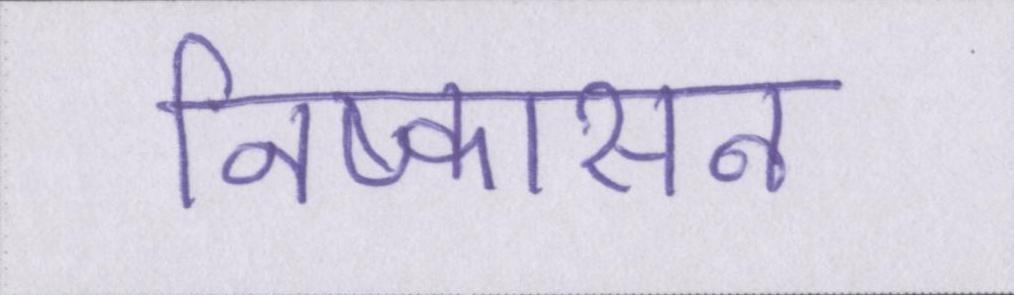 निष्कासन